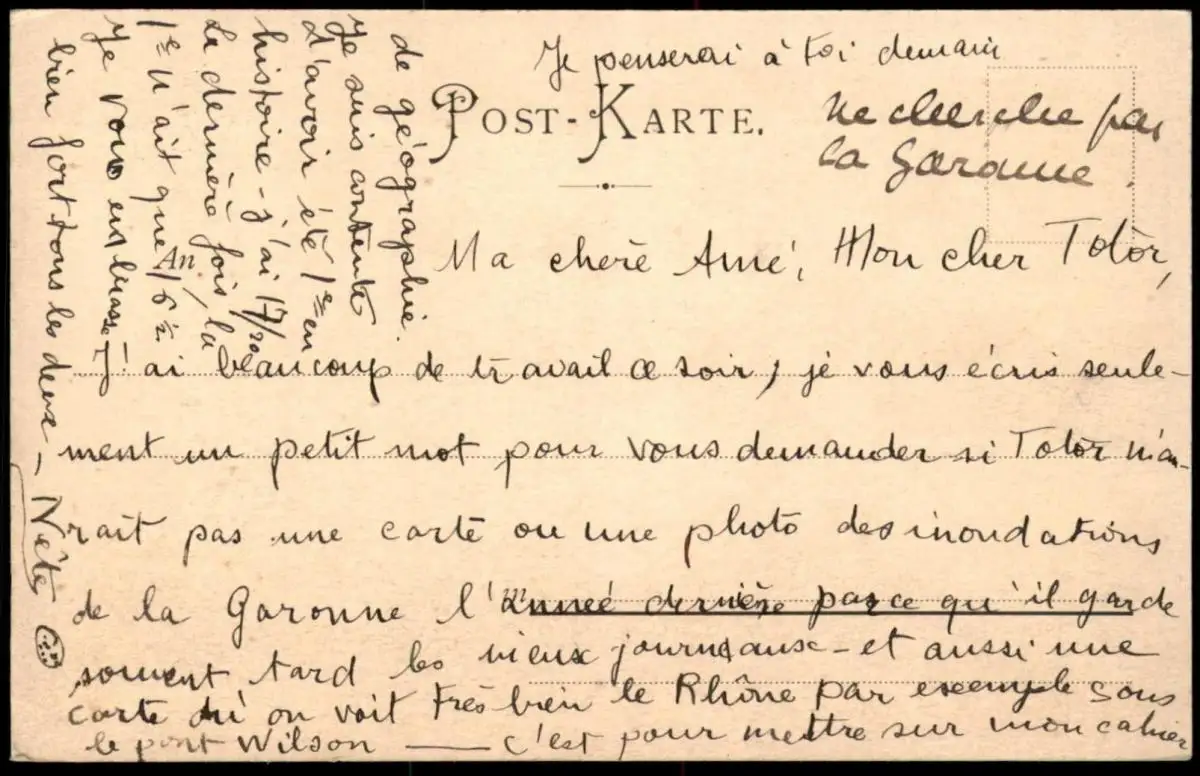 Je penserai à toi demain
POST-KARTE.
ne cherche pas
la Garonne.
Ma chère Amé, Mon cher Totòr,
An
J'ai beaucoup de travail ce soir, je vous écris seule-
ment un petit mot pour vous demander si Totòr n'au-
rait pas une carte ou une photo des inondations
de la Garonne l'année dernière parce qu'il garde
souvent tard les vieux journaux - et aussi une
carte où on voit très bien le Rhône par exemple sous
le pont Wilson — c'est pour mettre sur mon cahier
de géographie.
Je suis contente
d'avoir été 1ère en
histoire - j'ai 17/20
La dernière fois, la
1e n'ait que 16 1/2
Je vous embrasse
bien fort tous les deux,
Nête